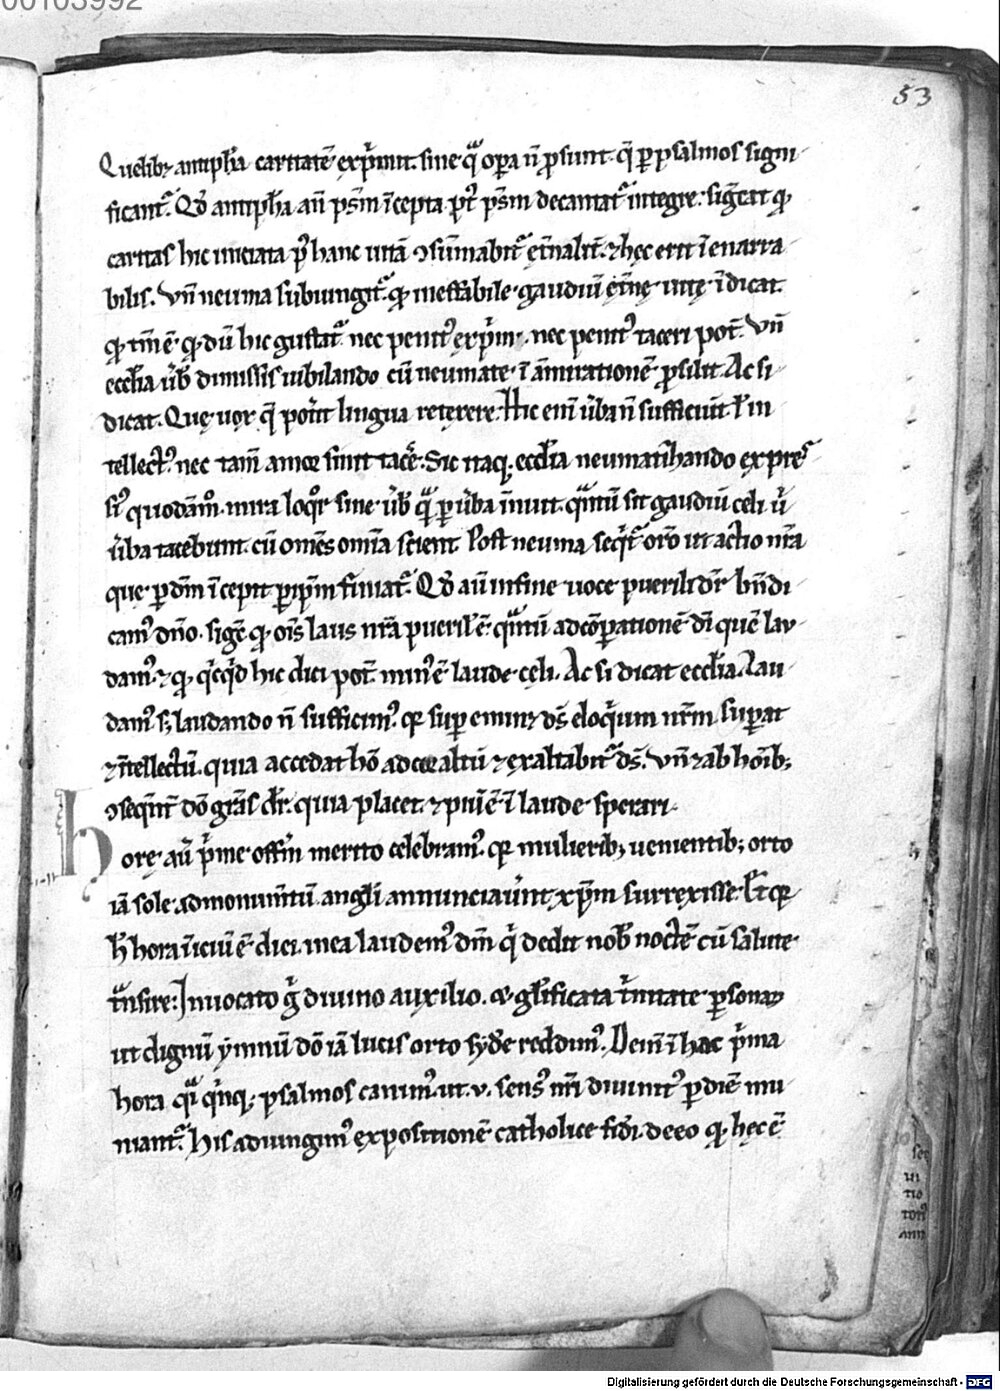 00103992
53
Quelibꝫ antiph̄a caritatē exp̄mit. sine qͣ opa n̄ ꝓsunt. q̄ ꝑ psalmos signi
ficant᷑. Qd̓ antiph̄a an̄ ps̄m īcepta p̓t ps̄m decantat᷑ integre: sig̅cat qꝫ
caritas hic iniciata p̓ hanc uitā ꝯsūmabit᷑ et̄nalit̄. ⁊ hęc erit īenarra
bilis. Vn̄ neuma subiungit᷑. qꝫ ineffabile gaudiū et̄nę uitę īdicat.
qꝫ tm̄ ē qꝫ dū hic gustat᷑ nec penitꝰ exp̄mi. nec penitꝰ taceri pot̄. Vn̄
eccl̄ia ūb̓ dimissis iubilando cū neumate ī am̄irationē ꝓsilit Ac si
dicat. Quę uox q̄ pot̄it lingua retexere. Hic eni ūba n̄ sufficiūt l̄ in
tellectꝰ nec tam̄ amor sinit tacē. Sic itaqꝫ eccl̄ia neumatihando expres
siꝰ quodāmo̓. mira loq̓r sine ūb̓ qͣ ꝑ ūba īnuit. qͣntū sit gaudiū celi ū
ūba tacebunt. cū omēs om̄ia scient. Post neuma seq̓t᷑ or̄o ut actio nr̄a
que ꝑ dm̄ īcepit ꝑ ip̄m finiat᷑. Qd̓ aū in fine uoce puerili dr̄ bn̄di
camꝰ dn̄o. sig̅t qꝫ oīs laus nr̄a pueril̓ ē. qͣntū ad cōparationē dī quē lau
damꝰ. ⁊ qꝫ q̓cq̓d hic dici pot̄. minꝰ ē laude celi. Ac si dicat eccl̄ia. Lau
damꝰ s; laudando n̄ sufficimꝰ. qꝫ suꝑ eminꝫ ds̄ eloq̓um nr̄m. suꝑat
⁊ ītellectū. quia accedat hō ad cor altū ⁊ exaltabit᷑ ds̄. Vn̄ ⁊ ab hoīb;
ꝯseq̄nt̄ dō gr̄as dr̄. quia placet ⁊ piū ē ī laude sperari.
Horę aū p̄me offm̄ merito celebramꝰ. qꝫ mulierib; uenientib; orto
iā sole ad monum̄tū angl̄i annunciaūnt xp̄m surrexisse. Et qꝫ
h̄ hora ūiciū ē diei. in ea laudemꝰ dm̄ q̓ dedit nob̓ noctē cū salute
tͣnsire. Inuocato g̓ diuino auxilio. ⁊ gl̄ificata t̄nitate ꝑsonaꝝ
ut dignū ymnū dō iā lucis orto syd̓e reddimꝰ. Dein̄ ī hac p̄ma
hora qͣi q̓nqꝫ psalmos canimꝰ. ut .v. sensꝰ nr̄i diuinitꝰ ꝑ diē mu
niant᷑. His adiungimꝰ expositionē catholice fidi. de eo qꝫ hęc ē
Digitalisierung gefördert durch die Deutsche Forschungsgemeinschaft - DFG